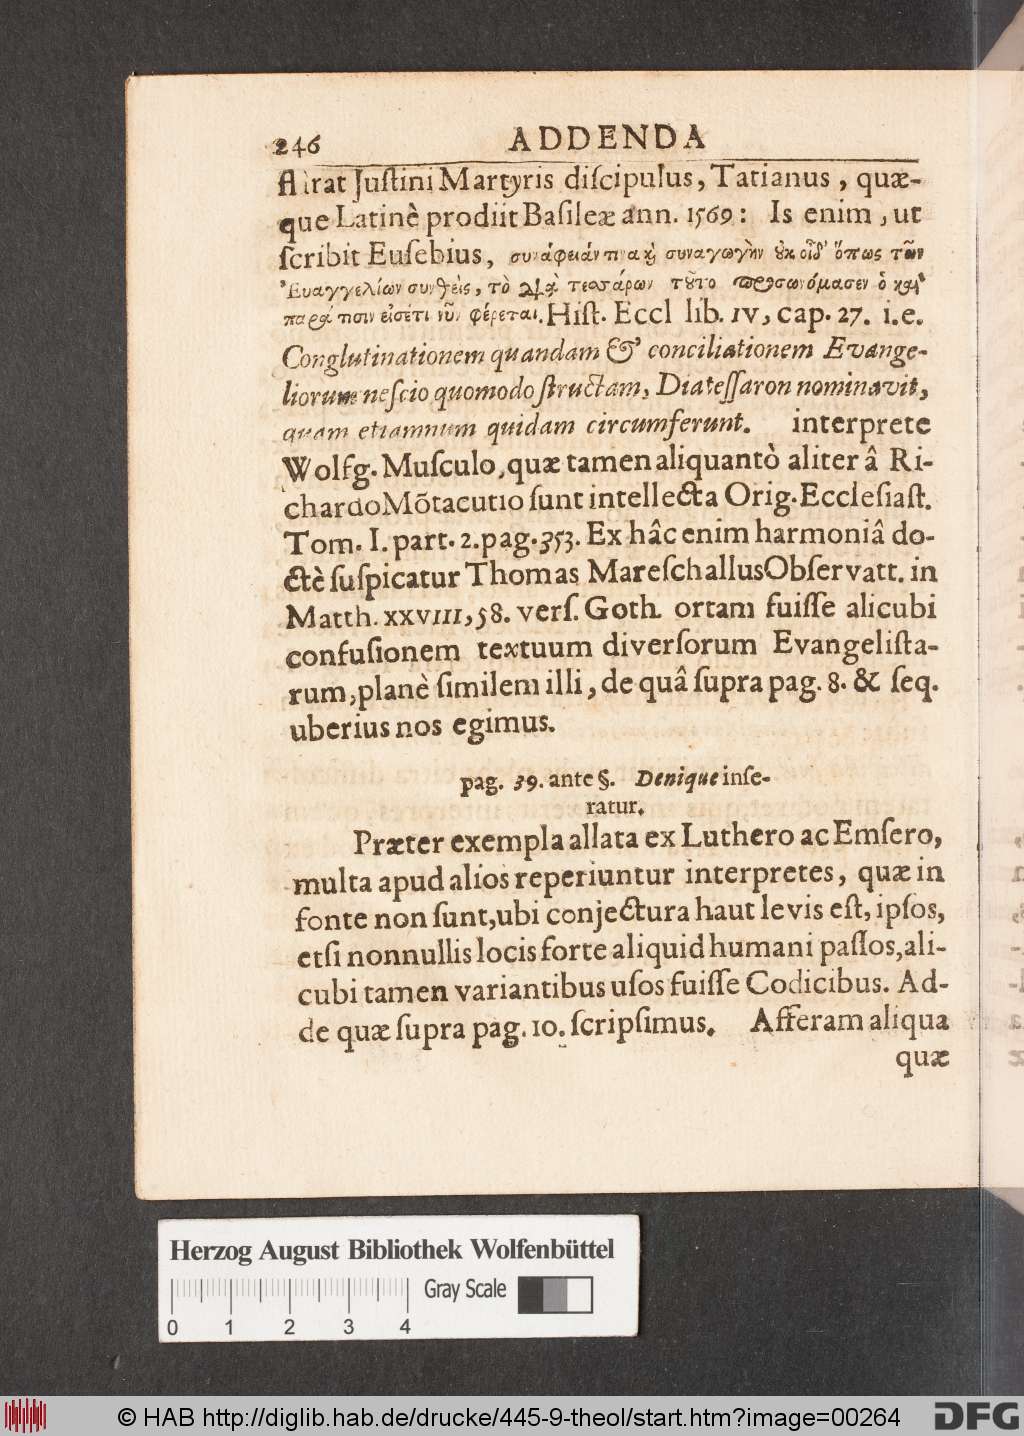 246 ADDENDA
flarat Juſtini Martyris diſcipulus, Tatianus, quæ-
que Latinè prodiit Baſileæ ann. 1569: Is enim, ut
ſcribit Euſebius, συνάφειάν τινα κỳ συναγωγὴν ȣκ οἶδ' ὅπως τῶν
Ἐυαγγελίων συνθεὶς, τὸ διὰ τεσσάρων τȣ͂το προσωνόμασεν ὁ καὶ
παρά τισιν εἰσέτι νῦν φέρεται. Hiſt. Eccl lib. IV, cap. 27. i.e.
Conglutinationem quandam & conciliationem Evange-
liorum neſcio quomodo ſtructam, Diateſſaron nominavit,
quam etiamnum quidam circumferunt. interprete
Wolfg. Muſculo, quæ tamen aliquantò aliter â Ri-
chardo Mõtacutio ſunt intellecta Orig. Eccleſiaſt.
Tom. I. part. 2. pag. 353. Ex hâc enim harmoniâ do-
ctè ſuſpicatur Thomas Mareſchallus Obſervatt. in
Matth. XXVIII, 58. verſ. Goth. ortam fuiſſe alicubi
confuſionem textuum diverſorum Evangeliſta-
rum, planè ſimilem illi, de quâ ſupra pag. 8. & ſeq.
uberius nos egimus.
pag. 39. ante §. Denique inſe-
ratur.
Præter exempla allata ex Luthero ac Emſero,
multa apud alios reperiuntur interpretes, quæ in
fonte non ſunt, ubi conjectura haut levis eſt, ipſos,
etſi nonnullis locis forte aliquid humani paſſos, ali-
cubi tamen variantibus uſos fuiſſe Codicibus. Ad-
de quæ ſupra pag. 10. ſcripſimus. Afferam aliqua
quæ
Herzog August Bibliothek Wolfenbüttel
Gray Scale
0 1 2 3 4
© HAB http://diglib.hab.de/drucke/445-9-theol/start.htm?image=00264
DFG